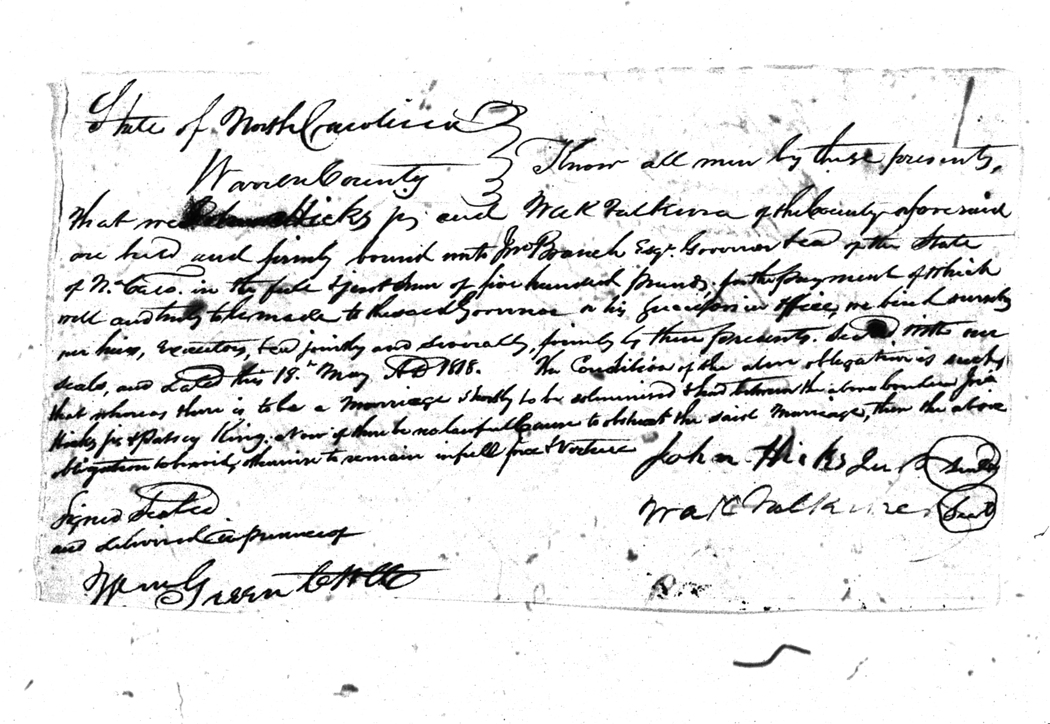 State of North Carolina
Warren County } Know all men by these presents,
that we John Hicks Jr and Wak Falkner of the County aforesaid
are held and firmly bound unto Jno Branch Esqr. Governor &ca of the State
of No. Caro. in the full & just sum of five hundred pounds, for the payment of which
well and truly to be made to the said Governor or his Successors in office, we bind ourselves
our heirs, executors, &ca jointly and severally, firmly by these presents. Sealed with our
seals, and dated this 18th May AD 1818. The Condition of the above obligation is such,
that whereas there is to be a Marriage shortly to be solemnised & had between the above bounden Jno
Hicks Jr. & Patsey King. Now if there be no lawful Cause to obstruct the said Marriage, then the above
obligation to be void, otherwise to remain in full force & Vertue
John Hicks Jur Seal
Signed Sealed
Wak Falkner Seal
and delivered in presence of
Wm Green